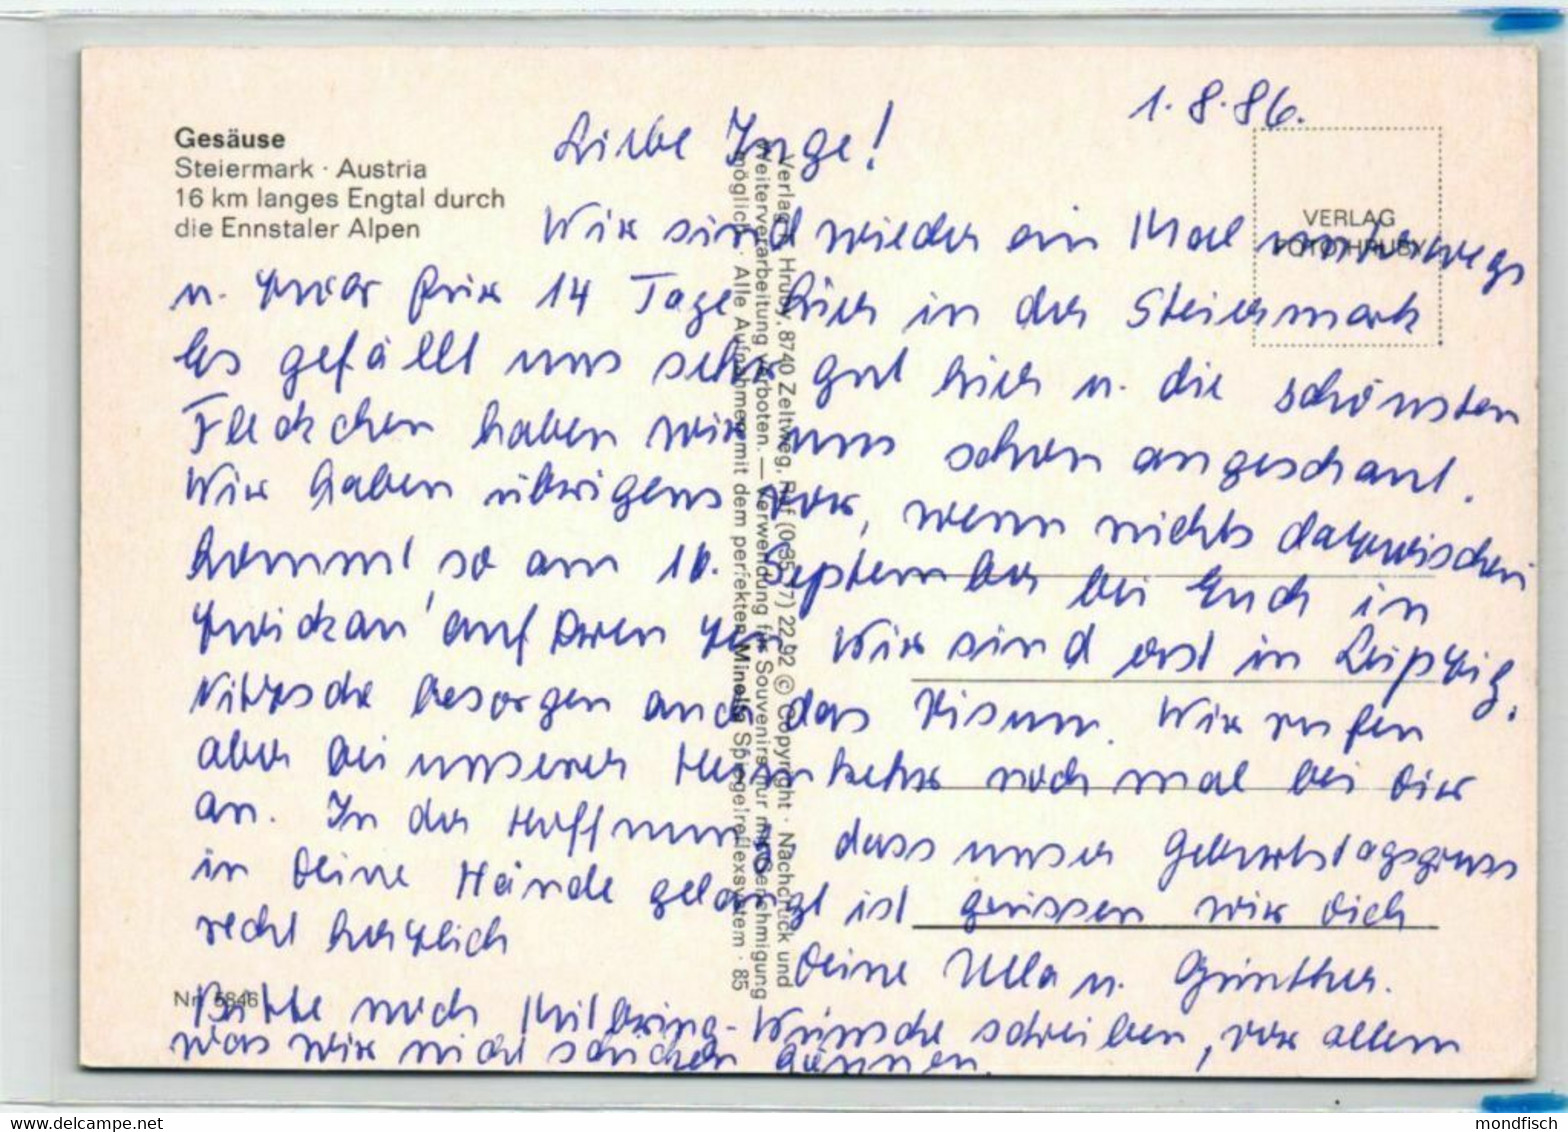 Gesäuse
Steiermark · Austria
16 km langes Engtal durch
die Ennstaler Alpen
1.8.86.
Liebe Inge!
Wir sind wieder ein Mal unterwegs
u. zwar für 14 Tage hier in der Steiermark
Es gefällt uns sehr gut hier u. die schönsten
Fleckchen haben wir uns schon angeschaut.
Wir haben übrigens vor, wenn nichts dazwischen
kommt, so am 16. September bei Euch in
Zwickau auf Wir sind erst in Leipzig,
besorgen auch das Visum. Wir rufen
aber bei unserer Heimkehr noch mal bei Dir
an. In der Hoffnung dass unser Geburtstagsgruss
in Deine Hände gelangt ist grüssen wir Dich
recht herzlich
Deine Ulla u. Günther.
Bitte noch Mitbring-Wünsche schreiben, vor allem
was wir nicht schicken können.
VERLAG
FOTO HRUBY
Verlag F. Hruby, 8740 Zeltweg, Ruf (0 35 77) 22 92 © Copyright · Nachdruck und
Weiterverarbeitung verboten. — Verwendung für Souvenirs nur mit Genehmigung
möglich · Alle Aufnahmen mit dem perfekten Minolta Spiegelreflexsystem · 85
Nr. 6846
www.delcampe.net
mondfisch